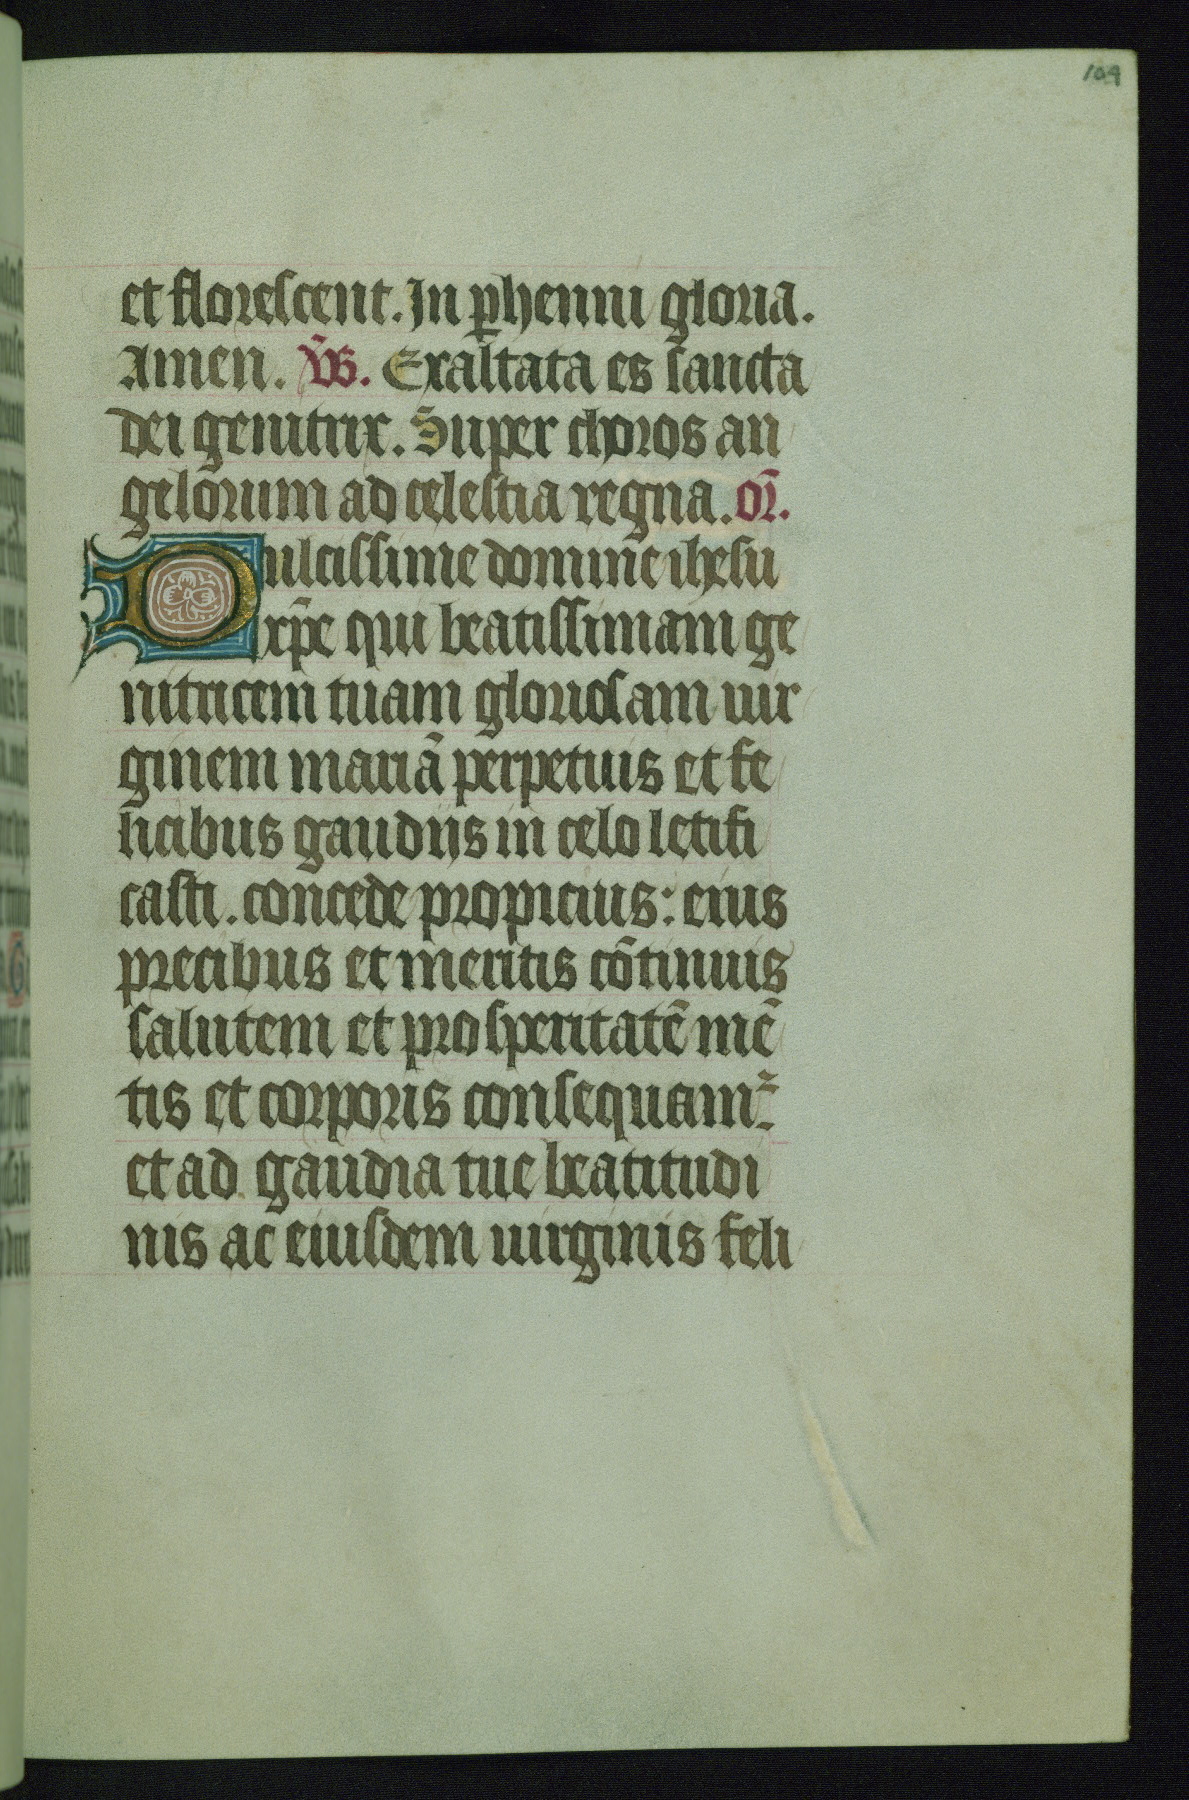 104
et florescent. In ꝑhenni gloria.
Amen. v̄s. Exaltata es sancta
dei genitrix. Super choros an
gelorum ad celestia regna. or̄.
Dulcissime domine ihesu
xp̄e qui beatissimam ge
nitricem tuam gloriosam uir
ginem mariā perpetuis et fe
licibus gaudijs in celo letifi
casti. concede propicius: eius
precibus et meritis cōtinuis
salutem et prosperitatē mē
tis et corporis consequam᷑
et ad gaudia tue beatitudi
nis ac eiusdem uirginis feli